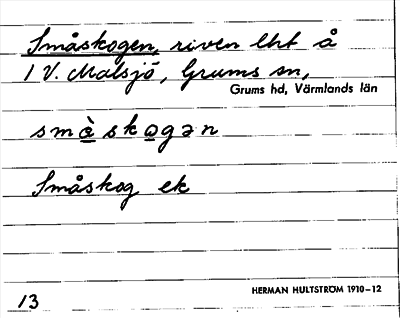 Småskogen, riven lht å
1 V. Malsjö, Grums sn,
Grums hd, Värmlands län
små̀skogən
Småskog ek
HERMAN HULTSTRÖM 1910-12
13